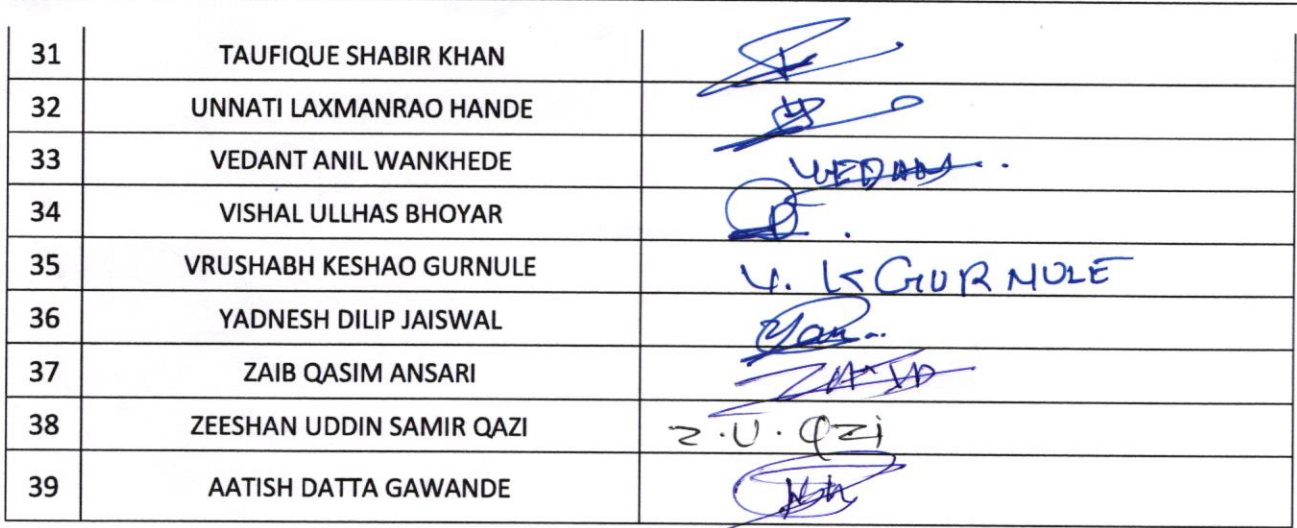 31 TAUFIQUE SHABIR KHAN
32 UNNATI LAXMANRAO HANDE
33 VEDANT ANIL WANKHEDE VEDANT.
34 VISHAL ULLHAS BHOYAR
35 VRUSHABH KESHAO GURNULE V. K GURNULE
36 YADNESH DILIP JAISWAL
37 ZAIB QASIM ANSARI
38 ZEESHAN UDDIN SAMIR QAZI Z.U.QZi
39 AATISH DATTA GAWANDE